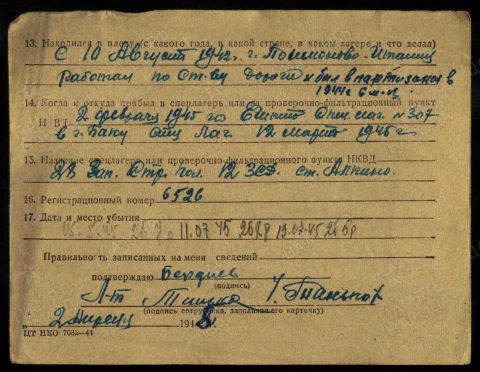 13. Находился в плену (с какого года, в какой стране, в каком лагере и что делал)
С 10 Август 1942 г. г. Италии
Работал по ст. ву дорог и был в партизанах в
1944 6 м-ц
14. Когда и откуда прибыл в спецлагерь или на проверочно-фильтрационный пункт
НКВД 2 февраль 1945 из Египт лаг. № 307
в г. Баку Спц Лаг. 12 март 1945 г
15. Название спецлагеря или проверочно-фильтрационного пункта НКВД
28 Зап. Стр. пол. 12 ЗСД. ст. Алкино.
16. Регистрационный номер 6526
17. Дата и место убытия
11.07 45
Правильность записанных на меня сведений
подтверждаю Бердиев
(подпись)
Л-т
(подпись сотрудника, заполнявшего карточку)
2 Апрель 194
ЦТ НКО 7032—44